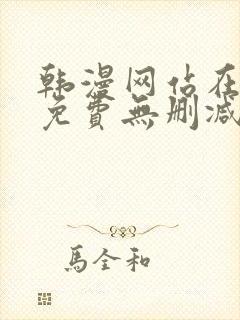 韩漫网站在
免費無删减
馬全和